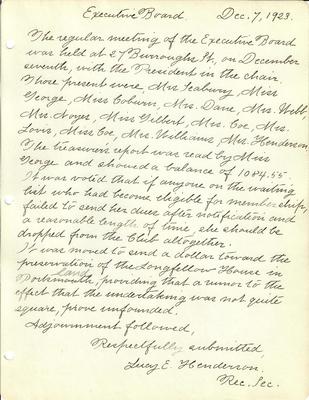 Executive Board. Dec. 7, 1923.
The regular meeting of the Executive Board
was held at 27 Burroughs St, on December
seventh, with the President in the chair.
Those present were, Mrs. Seabury, Miss
George, Miss Coburn, Mrs. Dane, Mrs. Webb,
Mrs. Noyes, Miss Gilbert, Mrs. Coe, Mrs.
Louis, Miss Coe, Mrs. Williams, Mrs. Henderson.
The Treasurer's report was read by Miss
George and showed a balance of 1084.55.
It was voted that if anyone on the waiting
list who had become eligible for membership,
failed to send her dues after notification and
a reasonable length of time, she should be
dropped from the Club altogether.
It was moved to send a dollar toward the
preservation of the Longfellow House in
Land
Portsmouth, providing that a rumor to the
effect that the undertaking was not quite
square, prove unfounded.
Adjournment followed,
Respectfully submitted,
Lucy E. Henderson.
Rec. Sec.